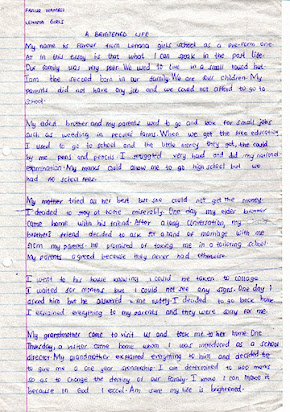 LENANA GIRLS
A BRIGHTENED LIFE
My name is from Lenana girls school as a one-form one
As in this essay is that what I can speak in the past life
Our family was very poor. We used to live in a small house but
I am the second born in our family. We are four children. My
parents did not have any job and we could not afford to go to
school.
My eldest brother and my parents used to go and look for casual jobs
such as weeding in peoples farms. When we get the free education
I used to go to school and the little money they get, she could
buy me pens and pencils. I struggled very hard and did my national
examination. My marks could allow me to go high school but we
had no school fees.
My mother tried all her best but she could not get the money
I decided to stay at home miserably. One day my elder brother
came home with his friend. After a long conversation, my
brother's friend decided to ask for a hand of marriage with me
from my parents. He promised of taking me in a tailoring school.
My parents agreed because they never had otherwise.
I went to his house knowing I could be taken to college
I waited for months but I could not see any signs. One day I
asked him but he answered me rudely. I decided to go back home
I explained everything to my parents and they were sorry for me.
My grandmother came to visit us and took me to her home. One
Thursday, a visitor came home whom I was introduced as a school
director. My grandmother explained everything to him and decided to
to give me a one year sponsorship. I am determined to work
so as to change the destiny of our family. I know I can make it
because in God I excel. Am sure my life is brightened.